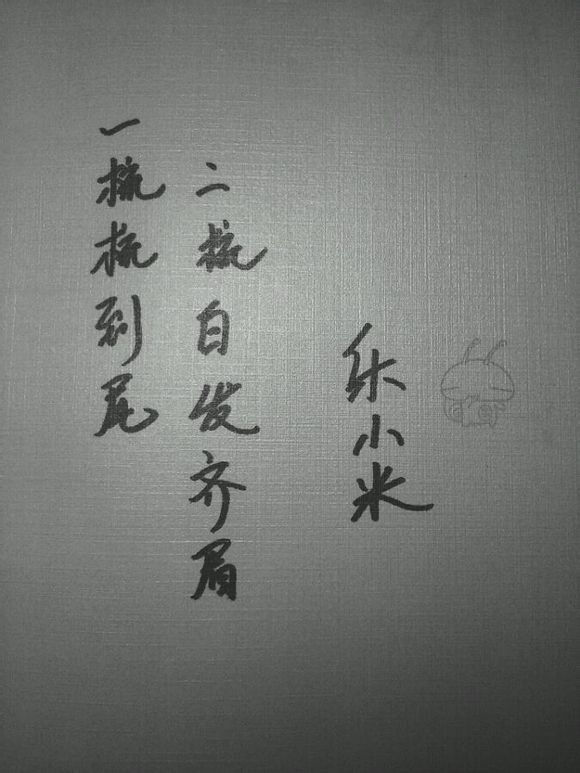 一梳梳到尾
二梳白发齐眉
乐小米